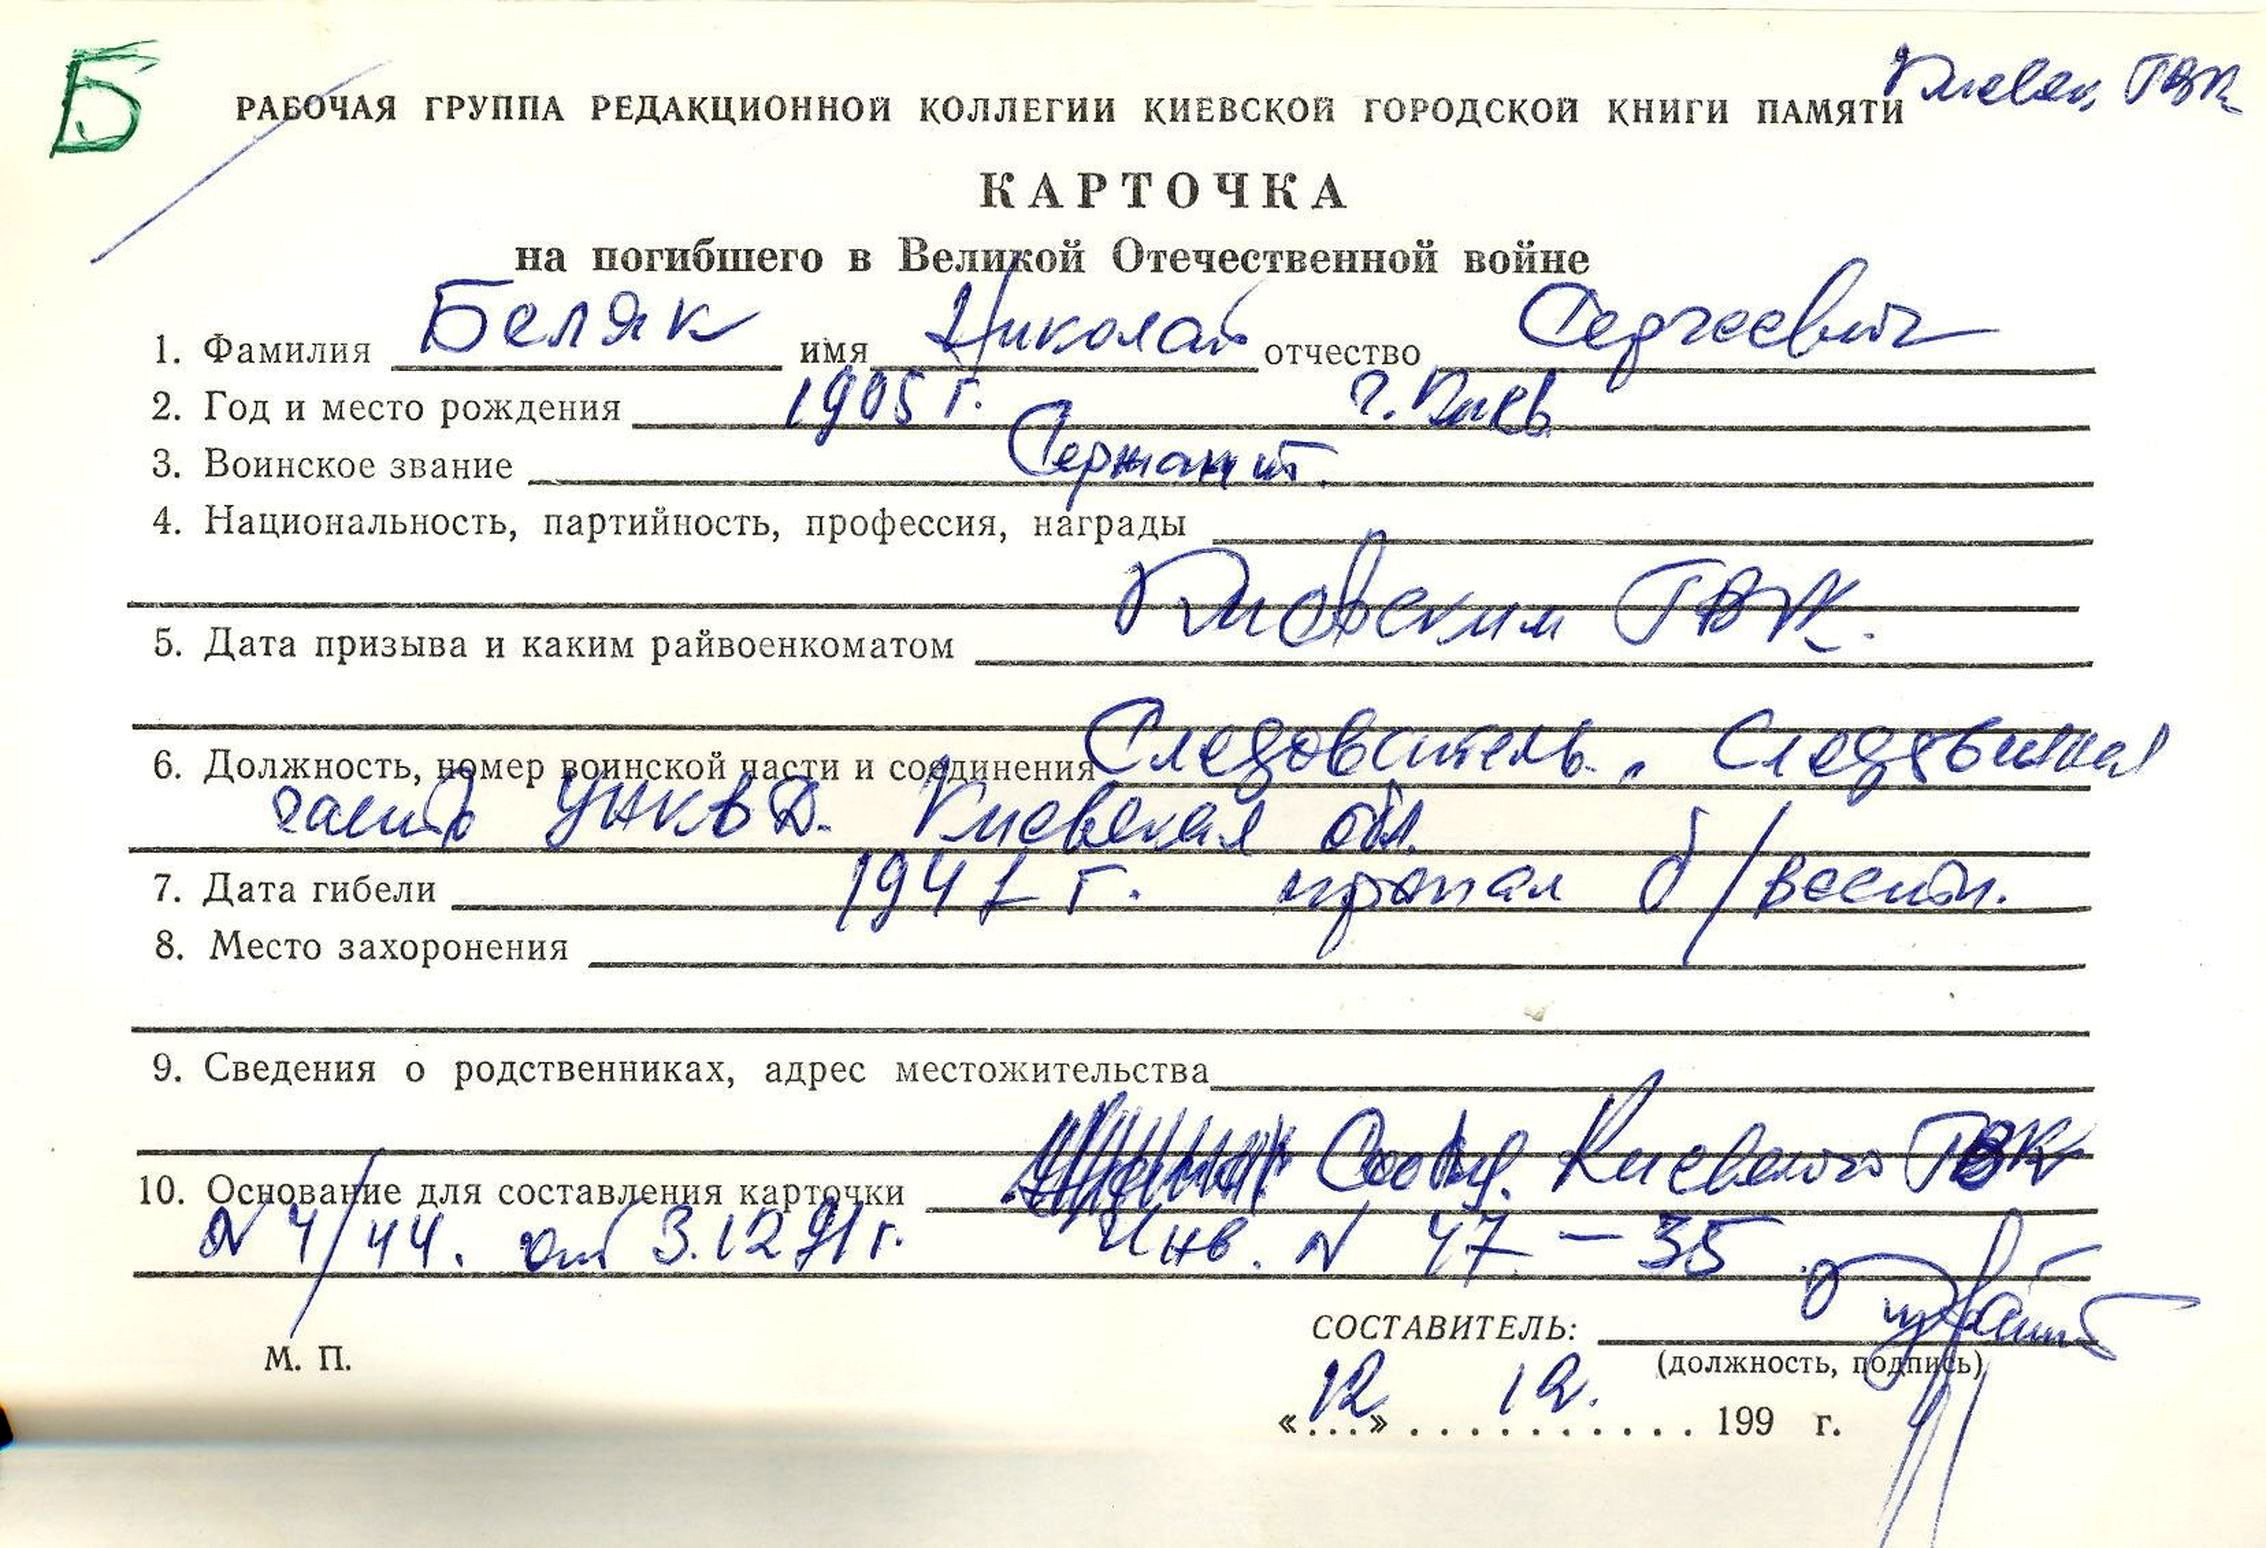 Б
Киевск. ГВК
РАБОЧАЯ ГРУППА РЕДАКЦИОННОЙ КОЛЛЕГИИ КИЕВСКОЙ ГОРОДСКОЙ КНИГИ ПАМЯТИ
КАРТОЧКА
на погибшего в Великой Отечественной войне
1. Фамилия Беляк имя Николай отчество Сергеевич
2. Год и место рождения 1905 г. г. Киев
3. Воинское звание Сержант.
4. Национальность, партийность, профессия, награды
5. Дата призыва и каким райвоенкоматом Киевским ГВК.
6. Должность, номер воинской части и соединения Следователь. Следственная
часть УНКВД. Киевская обл.
7. Дата гибели 1941 г. пропал б/вести.
8. Место захоронения
9. Сведения о родственниках, адрес местожительства
10. Основание для составления карточки Киевского ГВК
N 4/44. от 3.12 91 г. Инв. N 47 - 35
СОСТАВИТЕЛЬ:
М. П.
(должность, подпись)
«12» 12. 199 г.